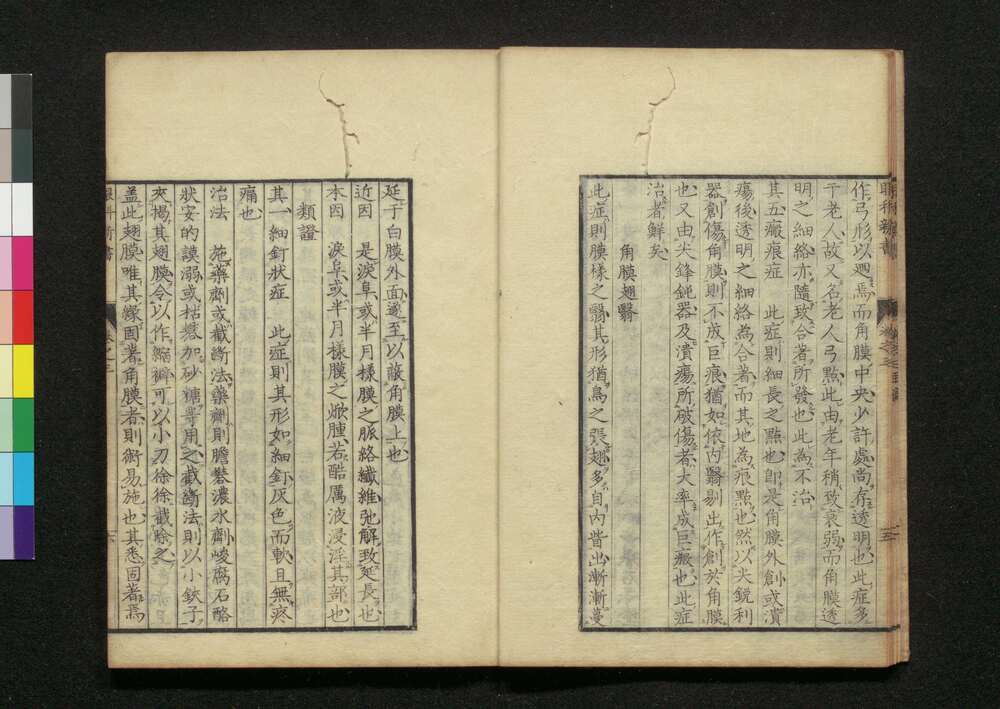 作弓形以廻焉而角膜中央少許處尚存透明也此症多
于老人故又名老人弓點此由老年稍致衰弱而角膜透
明之細絡亦隨致合著所發也此為不治
其五瘢痕症　此症則細長之點也即是角膜外創或潰
瘍後透明之細絡為合著而其地為痕點也然以尖銳利
器創傷角膜則不成巨痕猶如依內翳剔出作創於角膜
也又由尖鋒鈍器及潰瘍所破傷者大率成巨瘢也此症
治者鮮矣
角膜翅翳
此症則膜樣之翳其形猶鳥之張翅多自內眥出漸漸蔓
延于白膜外面遂至以蔽角膜上也
近因　是淚阜或半月樣膜之脈絡纖維弛解致延長也
本因　淚阜或半月樣膜之焮腫若酷厲液浸淫其部也
類證
其一細釘狀症　此症則其形如細釘灰色而軟且無疼
痛也
治法　施藥劑或截斷法藥劑則膽礬濃水劑峻腐石酪
狀安的謨溺或枯礬加砂糖等用之截斷法則以小鋏子
夾揭其翅膜令以作縮襞可以小刀徐徐截除之
盖此翅膜唯其緣固著角膜者則術易施也其悉固著焉
眼科新書
卷之三